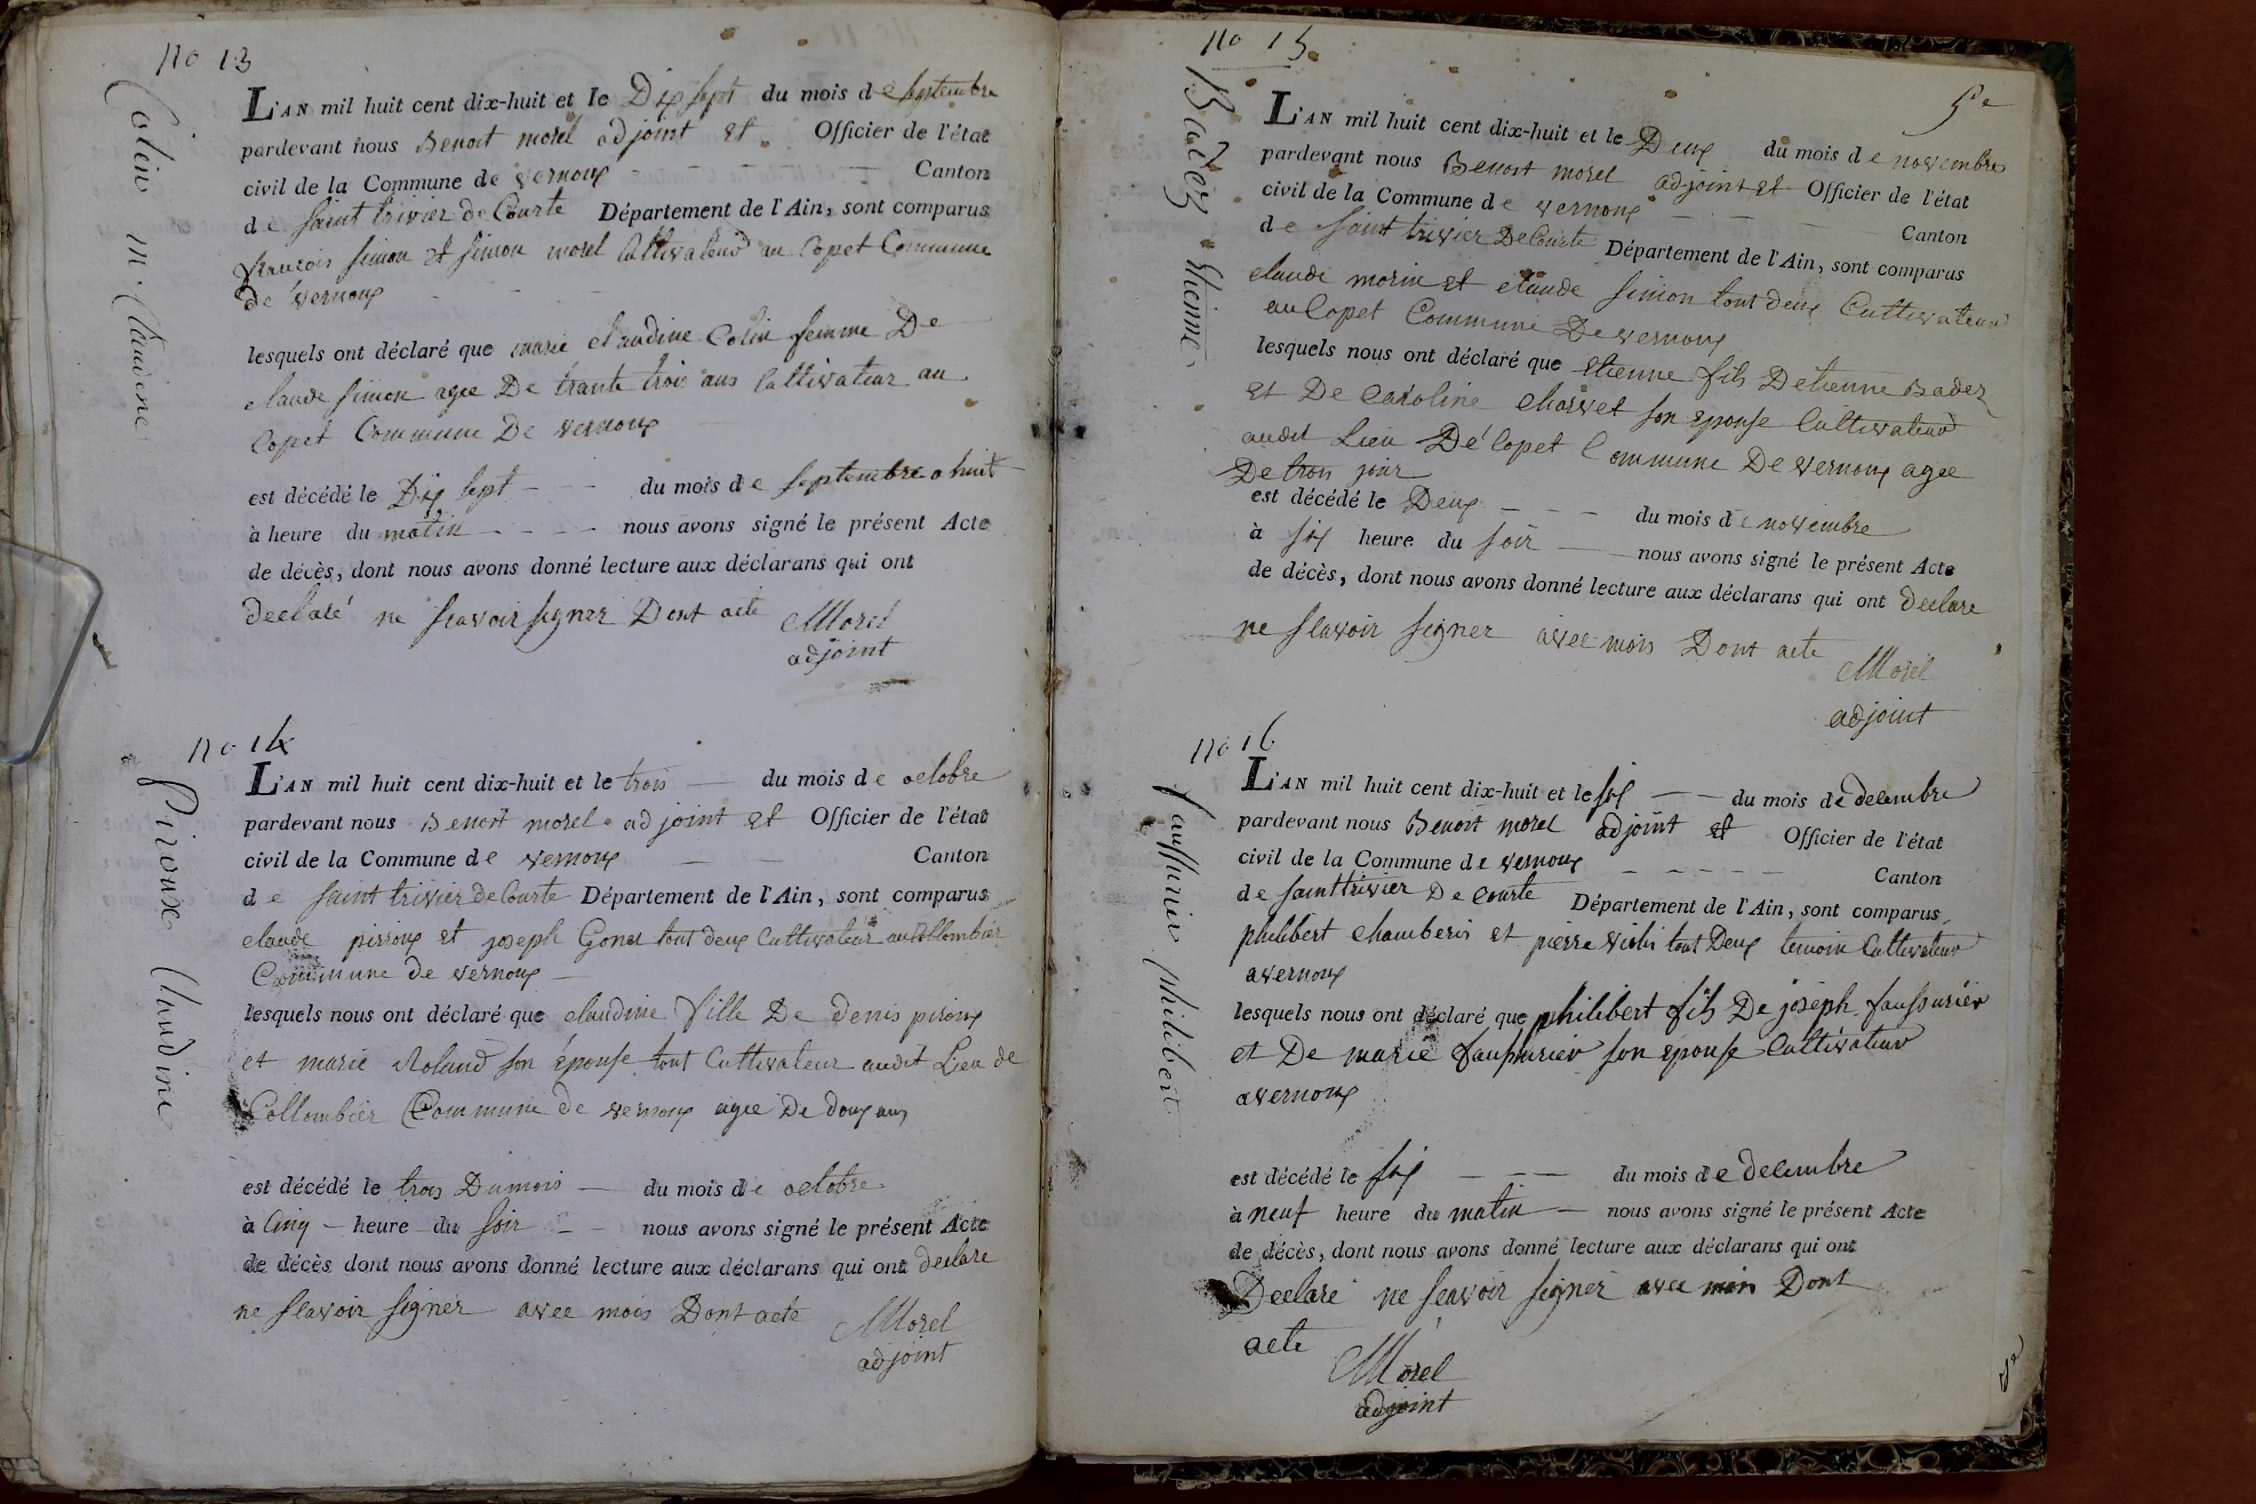 no 13
Colin m. Claudine
L'AN mil huit cent dix-huit et le Dix sept du mois de septembre
pardevant nous Benoit morel adjoint et Officier de l'état
civil de la Commune de vernoux Canton
de saint trivier de Courte Département de l'Ain, sont comparus
francois simon et simon morel Cultivateur au Copet Commune
de vernoux
lesquels ont déclaré que marie claudine Colin femme De
claude simon agee De trante trois ans Cultivateur au
Copet Commune De vernoux
est décédé le Dix sept du mois de septembre a huit
à heure du matin nous avons signé le présent Acte
de décès, dont nous avons donné lecture aux déclarans qui ont
declaré ne scavoir signer Dont acte Morel
adjoint
no 14
Piroux Claudine
L'AN mil huit cent dix-huit et le trois du mois de octobre
pardevant nous Benoit morel adjoint et Officier de l'état
civil de la Commune de vernoux Canton
de saint trivier de Courte Département de l'Ain, sont comparus
claude pirroux et joseph Goner tout deux Cultivateur au Collombier
Commune de vernoux
lesquels nous ont déclaré que claudine fille De denis piroux
et marie Roland son épouse tout Cultivateur audit Lieu de
Collombier Commune de vernoux agee De doux ans
est décédé le trois Du mois du mois de octobre
à Cinq heure du soir nous avons signé le présent Acte
de décès dont nous avons donné lecture aux déclarans qui ont declare
ne scavoir signer avec mois Dont acte Morel
adjoint
no 15
5e
Badez Etienne
L'AN mil huit cent dix-huit et le Deux du mois de novembre
pardevant nous Benoit morel adjoint et Officier de l'état
civil de la Commune de vernoux Canton
de saint trivier De Courte Département de l'Ain, sont comparus
claude morin et claude simon tout deux Cultivateur
au Copet Commune De vernoux
lesquels nous ont déclaré que Etienne fils Detienne Badez
et De Caroline Charvet son epouse Cultivateur
audit Lieu De Copet Commune De vernoux agee
De trois jour
est décédé le Deux du mois de novembre
à six heure du soir nous avons signé le présent Acte
de décès, dont nous avons donné lecture aux déclarans qui ont declare
ne scavoir signer avec mois Dont acte
Morel
adjoint
no 16
faussurier philibert
L'AN mil huit cent dix-huit et le six du mois de decembre
pardevant nous Benoit morel adjoint et Officier de l'état
civil de la Commune de vernoux Canton
de saint trivier De Courte Département de l'Ain, sont comparus
philibert Chamberis et pierre tout Deux temoin Cultivateur
a vernoux
lesquels nous ont déclaré que philibert fils De joseph faussurier
et De marie faussurier son epouse Cultivateur
a vernoux
est décédé le six du mois de decembre
à neuf heure du matin nous avons signé le présent Acte
de décès, dont nous avons donné lecture aux déclarans qui ont
Declare ne scavoir signer avec mois Dont
acte
Morel
adjoint